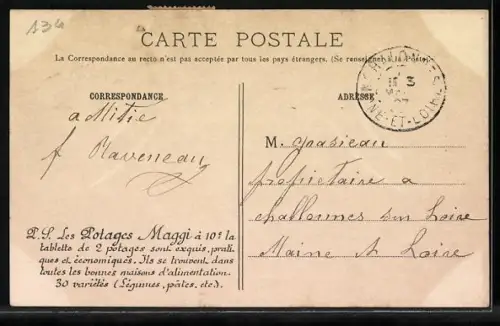 A34
CARTE POSTALE
La Correspondance au recto n'est pas acceptée par tous les pays étrangers. (Se renseigner à la Poste)
CORRESPONDANCE
ADRESSE
amitie
f Raveneau
M. Grasieau
propietaire a
challonnes sur Loire
Maine et Loire
P.S. Les Potages Maggi à 10c la
tablette de 2 potages sont exquis, prati-
ques et économiques. Ils se trouvent dans
toutes les bonnes maisons d'alimentation.
30 variétés (Légumes, pâtes, etc.).
ET-LOIRE